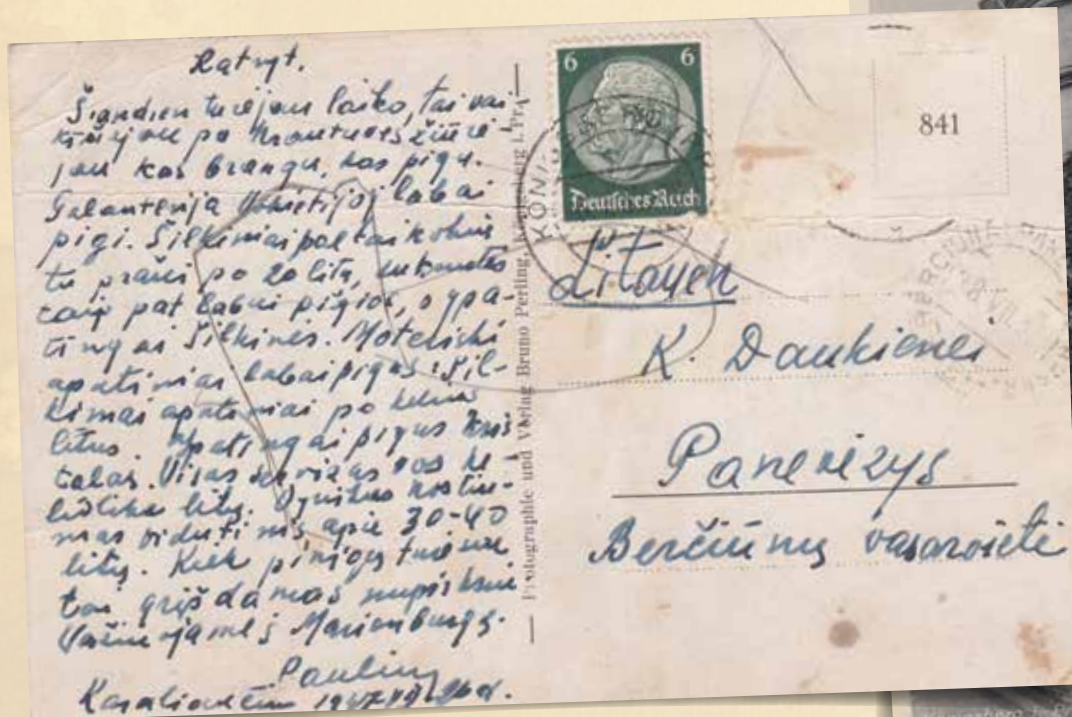 Šiandien turėjau laiko, tai vai-
kščiojau po krautuves žiūrė-
jau kas brangu, kas pigu.
Galanterija Vokietijoj labai
pigi. Šilkiniai
po 20 litų,
taip pat labai pigios, o ypa-
tingai šilkinės. Moteriški
apatiniai labai pigūs: šil-
kiniai apatiniai po
litus. Ypatingai pigus kris
talas. Visas servizas vos ke-
liolika litų. Vyriškas kostiu-
mas vidutinis apie 30-40
litų. Kiek pinigų turėsiu
tai grįždamas nupirksiu
Važiuojame į Marienburgą.
Paulius
Photographie und Verlag Bruno Perling, Königsberg i. Pr.
6 6
Deutsches Reich
841
Litauen
K. Daukienei
Panevėžys
Berčiūnų vasarvietė